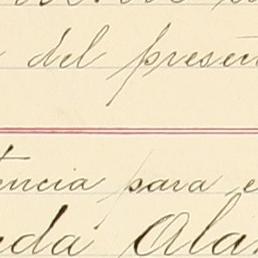 del presen
encia para e
da Ala